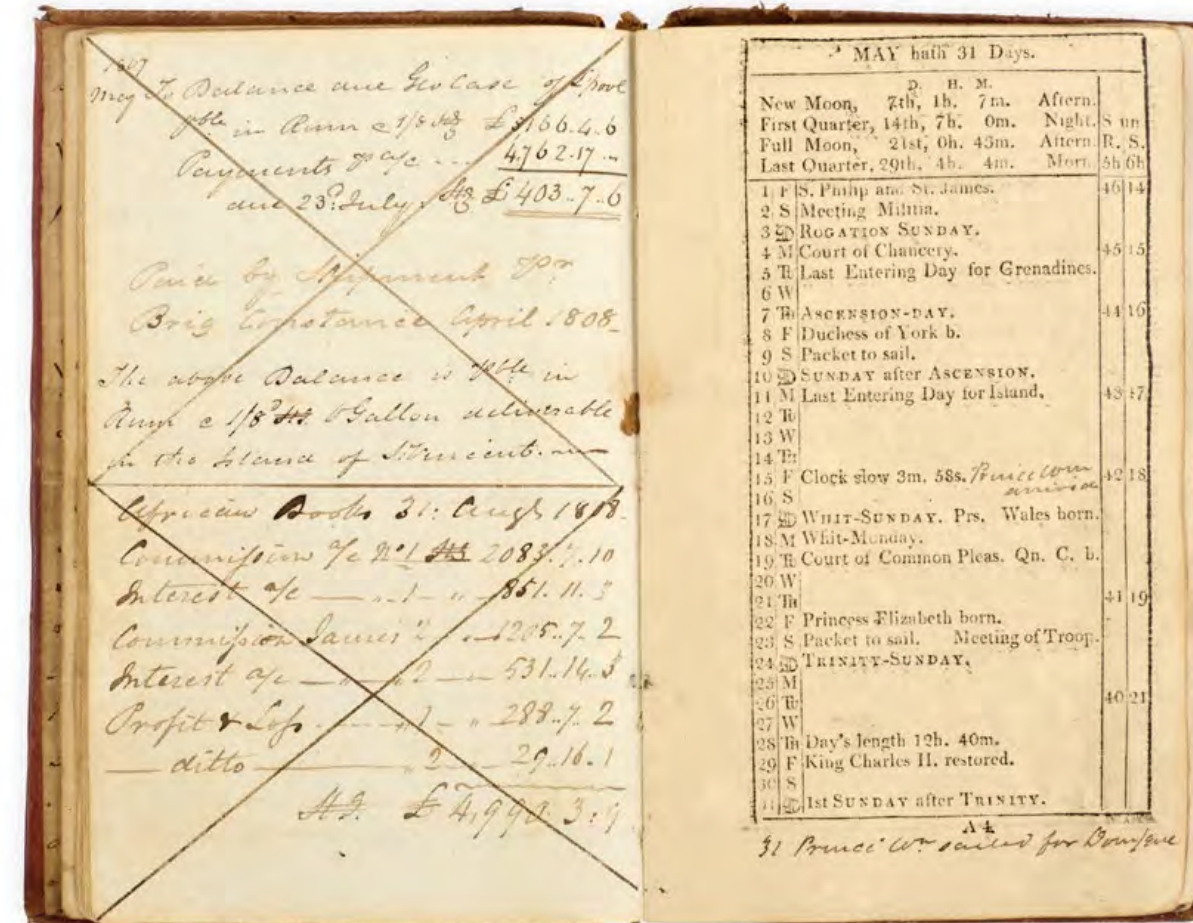 1807
May To Balance due Geo Case of L'pool
pble in Rum @ 1/8 Stg £5166.4.6
Payments p a/c --- 4,762.17.-
due 23d: July Stg £403..7..6
Paid by Shipment Pr
Brig Constance April 1808-
The above Balance is Pble in
Rum @ 1/8 Stg. Gallon deliverable
in the Island of St Vincent.
African Books 31: Augt 1808.
Commission a/c No 1 Stg 2083.7.10
Interest a/c — „ 1 - „ - 851.11.3
Commission James „ 2 „ - 1205..7..2
Interest a/c — „ 2 — 531..14..3
Profit & Loss — „ 1 - „ 288..7..2
— ditto — „ 2 „ 29.16.1
Stg. £4,990.3:9
MAY hath 31 Days.
D. H. M.
New Moon, 7th, 1h. 7m. Aftern.
First Quarter, 14th, 7h. 0m. Night. Sun
Full Moon, 21st, 0h. 43m. Aftern. R. S.
Last Quarter, 29th, 4h. 4m. Morn. 5h 6h
1 F S. Philip and St. James. 46 14
2 S Meeting Militia.
3 ROGATION SUNDAY.
4 M Court of Chancery. 45 15
5 Tu Last Entering Day for Grenadines.
6 W
7 Th ASCENSION-DAY. 44 16
8 F Duchess of York b.
9 S Packet to sail.
10 SUNDAY after ASCENSION.
11 M Last Entering Day for Island. 43 17
12 Tu
13 W
14 Th
15 F Clock slow 3m. 58s. Prince Wm 42 18
arrived
16 S
17 WHIT-SUNDAY. Prs. Wales born.
18 M Whit-Monday.
19 Tu Court of Common Pleas. Qn. C. b.
20 W
21 Th 41 19
22 F Princess Elizabeth born.
23 S Packet to sail. Meeting of Troop.
24 TRINITY-SUNDAY.
25 M
26 Tu 40 21
27 W
28 Th Day's length 12h. 40m.
29 F King Charles II. restored.
30 S
31 1st SUNDAY after TRINITY.
A 4
31 Prince Wm sailed for